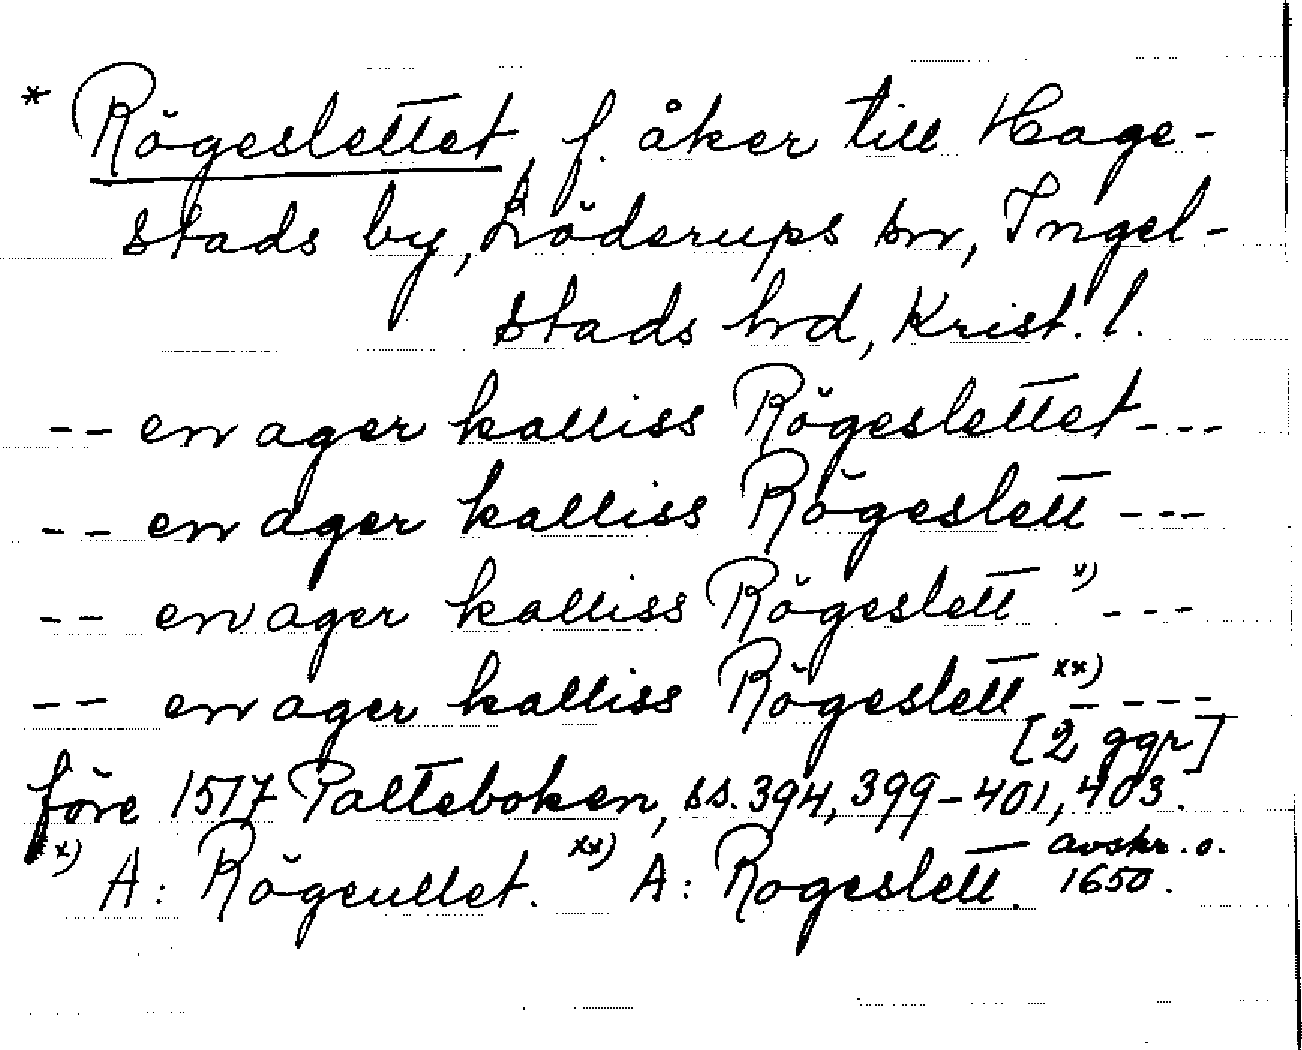 * Rögeslettet, f. åker till Hage-
stads by, Löderups sn, Ingel-
stads hrd, Krist. l.
-- en ager kalliss Rögeslettet---
-- en ager kalliss Rögeslett ---
-- en ager kalliss Rögeslett x) ---
-- en ager kalliss Rögeslett xx) ----
[2 ggr]
före 1517 Palteboken, ss. 394, 399-401, 403.
x) A: Rögeullet. xx) A: Rogeslett. avskr. o.
1650.